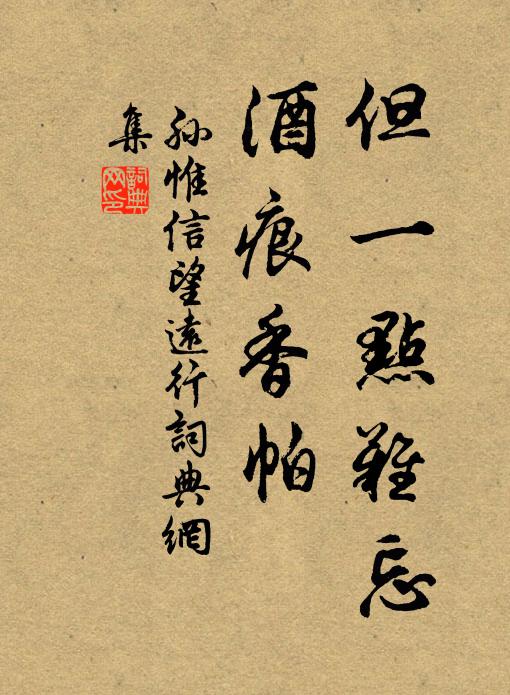 但一點難忘
酒痕香帕
孫惟信望遠行詞典網
集
詞典
网印